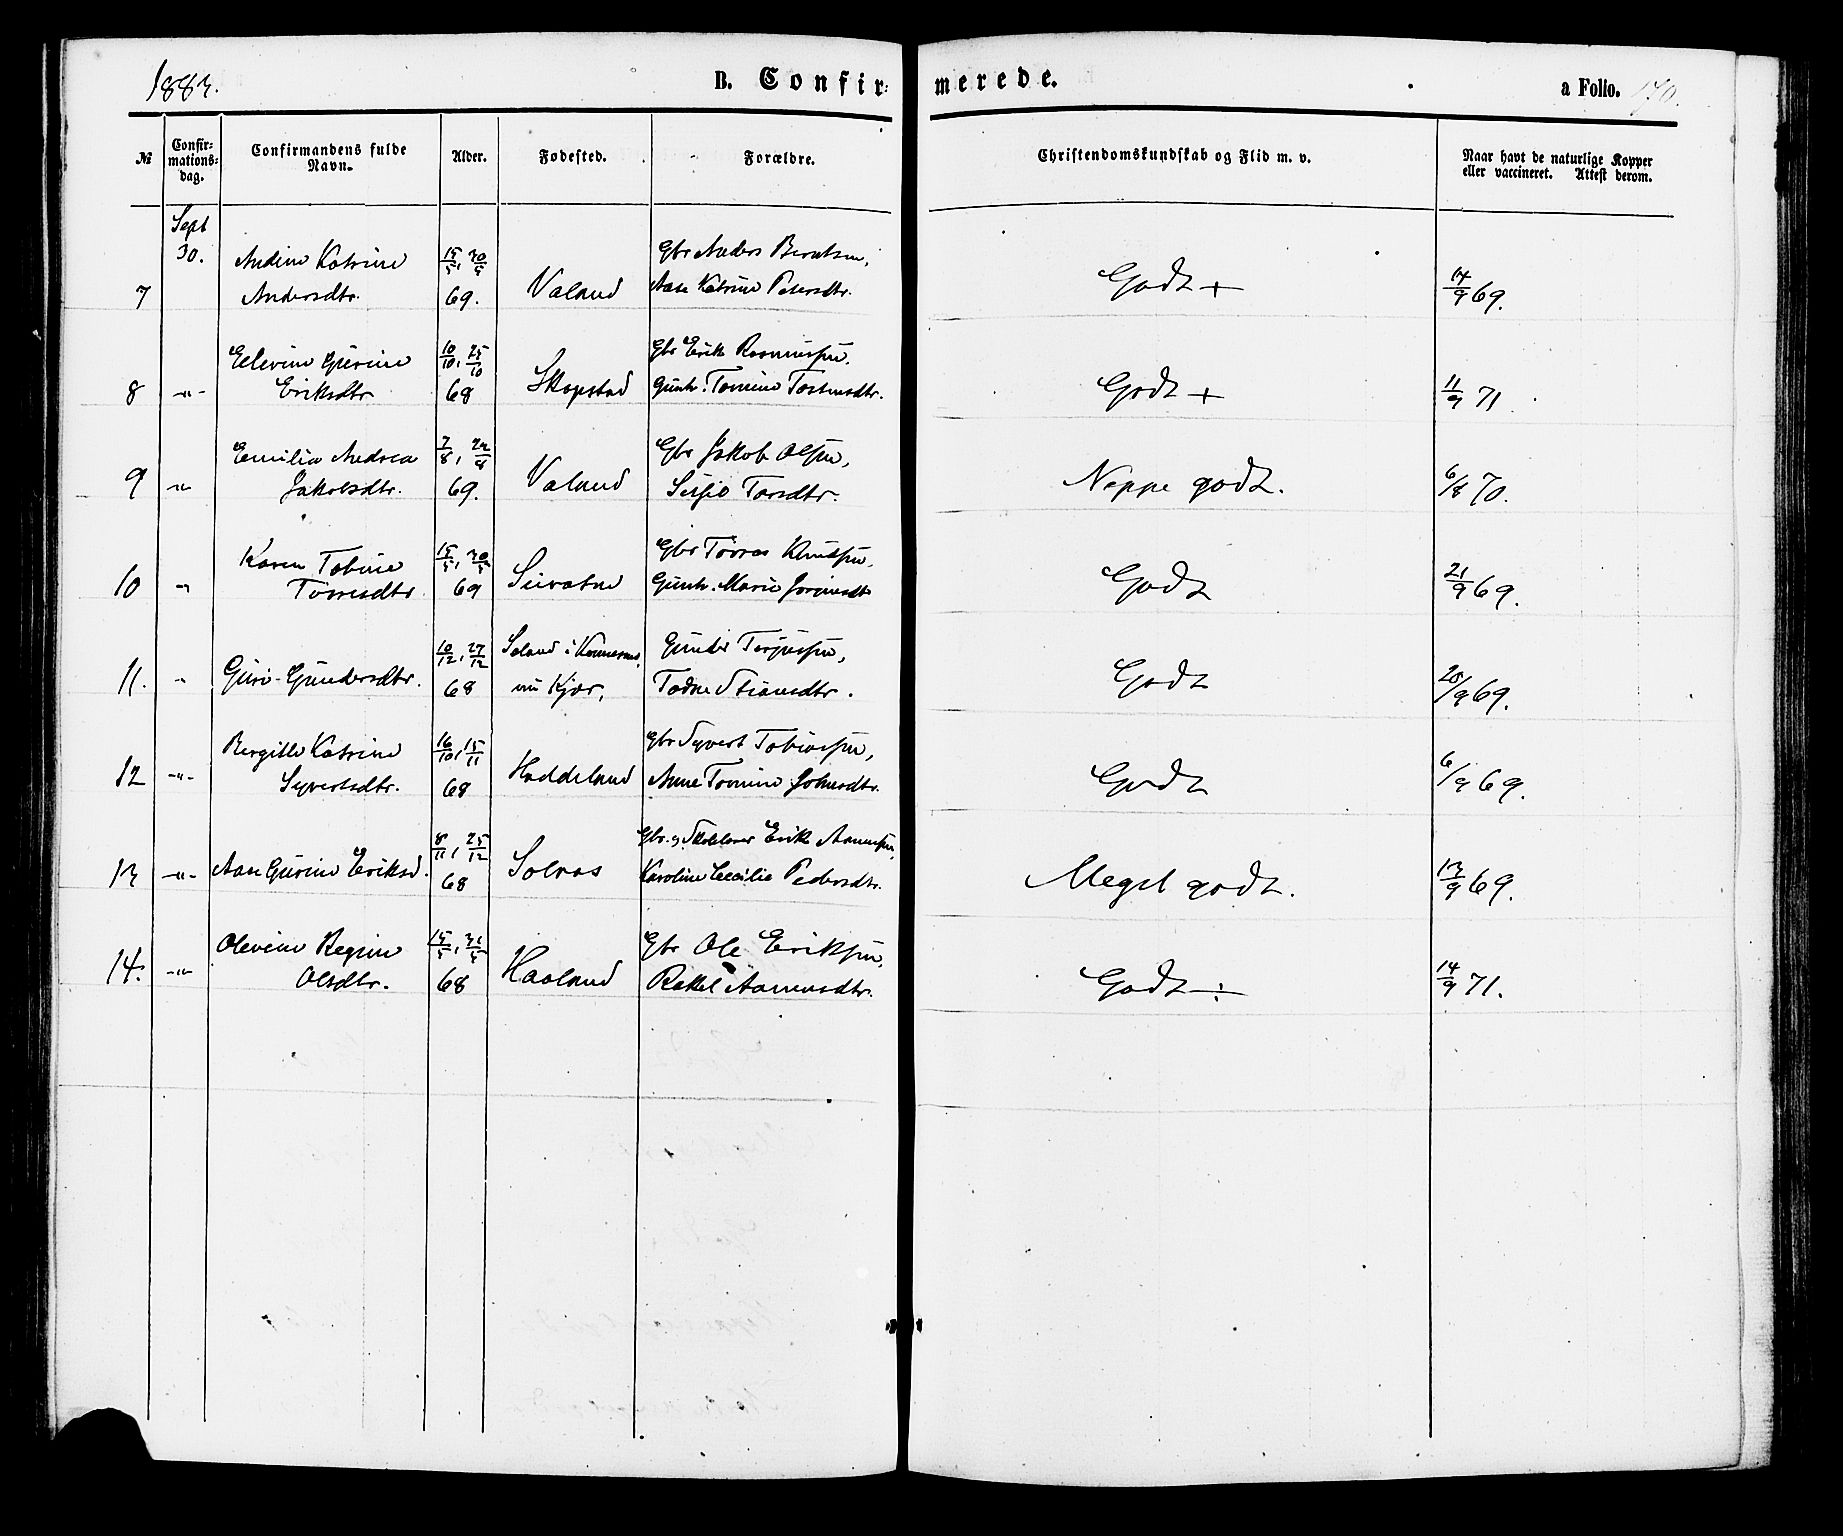 1883.
B. Confir=
merede.
a Folio. 170.
№
Confir=
mations=
dag.
Confirmandens fulde
Navn.
Alder.
Fødested.
Forældre.
Christendomskundskab og Flid m. v.
Naar havt de naturlige Kopper
eller vaccineret. Attest derom.
Sept
30.
7
Andine Katrine
Andersdtr.
15/5, 30/5
69.
Valand
Gbr Anders Berntsen,
Aase Katrine Petersdtr.
Godt +
14/9 69.
8
-"-
Elevine Gurine
Eriksdtr
10/10, 25/10
68
Skogstad
Gbr Erik Rasmussen.
Gunh. Tomine Tostensdtr.
Godt +
11/9 71
9
-"-
Emilia Andrea
Jakobsdtr.
7/8, 22/8
69.
Valand
Gbr Jakob Olsen,
Torsdtr.
Neppe godt.
6/8 70.
10
"
Karen Tobine
Torresdtr.
15/5, 30/5
69
Gbr Torres Knudsen,
Gunh. Marie
Godt
21/9 69.
11.
"
Guro Gundersdtr.
10/12, 27/12
68
i
nu Kjær,
Gunder Terjussen,
Todne Stiansdtr.
Godt
20/9 69.
12
-"-
Bergitte Katrine
Syvertsdtr.
16/10, 15/11
68
Haddeland
Gbr Syvert Tobiassen,
Anne Tomine Johnsdtr.
Godt
6/9 69.
13
-"-
Aase Gurine Eriksd.
8/11, 25/12
68
Solaas
Gbr. og Skolelærer Erik Aanensen,
Karoline Cecilie Pedersdtr.
Meget godt.
13/9 69.
14.
-"-
Olevine Regine
Olsdtr.
15/5, 31/5
68
Haaland
Gbr Ole Eriksen,
Rakel Aanensdtr.
Godt ÷
14/9 71.